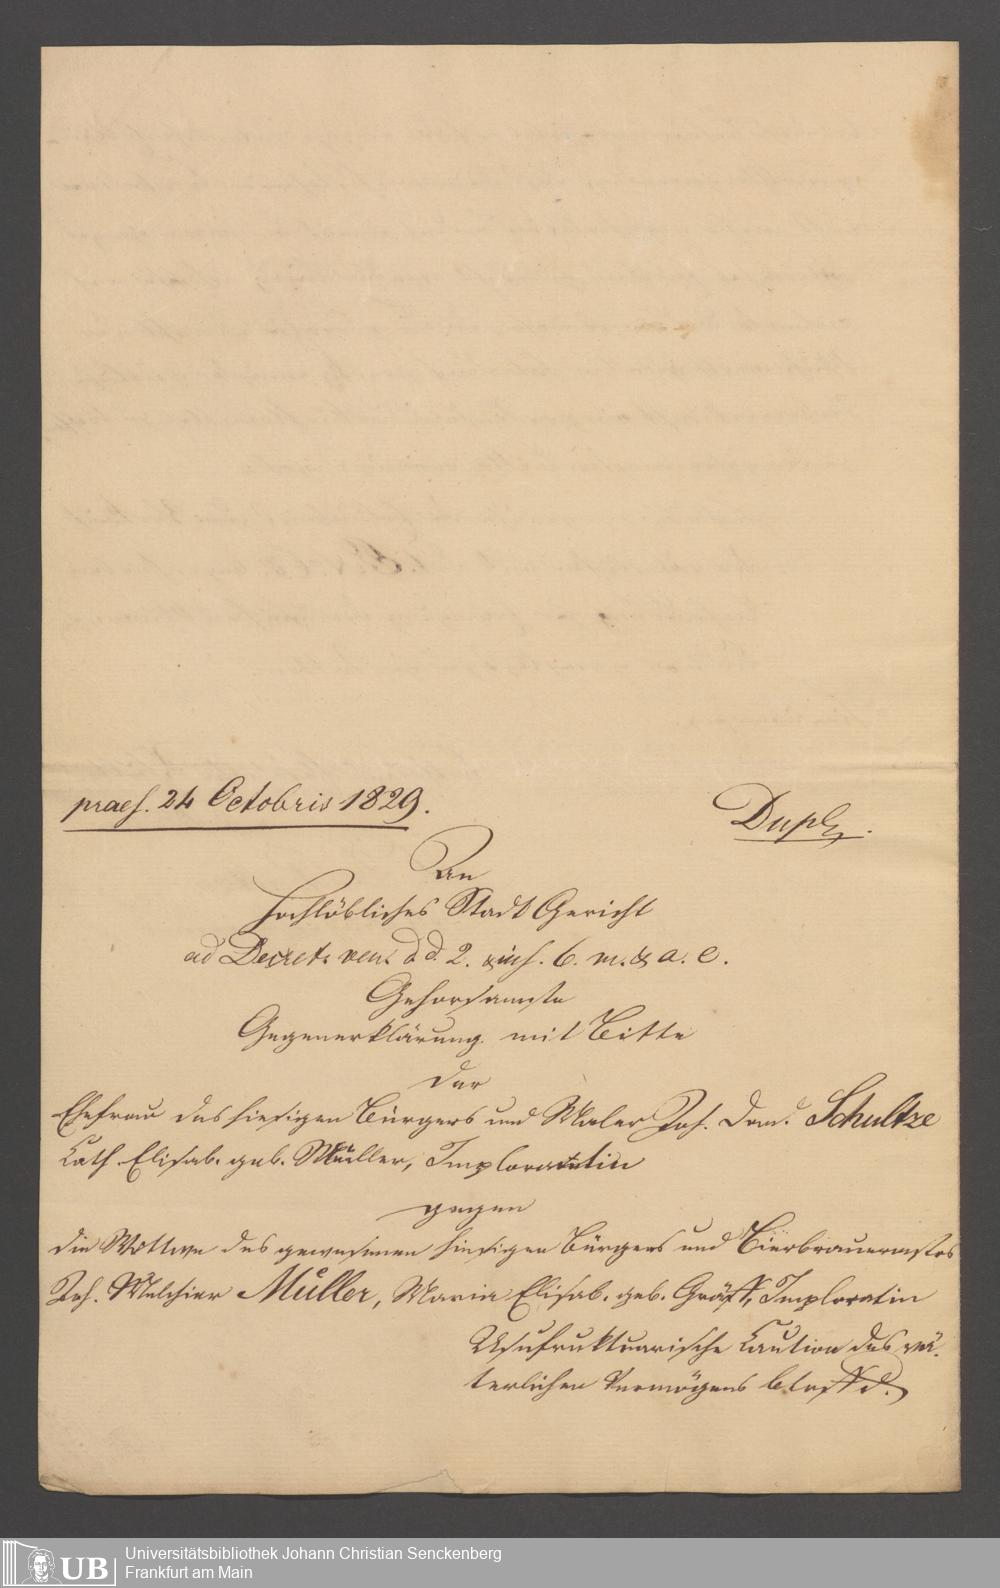 praes. 24 Octobris 1829.
Dupl.
An
Hochlöbliches Stadt Gericht
ad Decret. ven. d. d. 2. & ins. 6. m. & a. c.
Gehorsamste
Gegenerklärung mit Bitte
der
Ehefrau des hiesigen Bürgers und Maler Joh. Schultze
Cath. Elisab. geb. Müller, Implorantin
gegen
die Wittwe des gewesenen hiesigen Bürgers und Bierbrauermstrs
Joh. Melchior Müller, Maria Elisab. geb. Gräff, Imploratin
Usufruktuarische Caution des vä-
terlichen Vermögens betreffd.
UB
Universitätsbibliothek Johann Christian Senckenberg
Frankfurt am Main